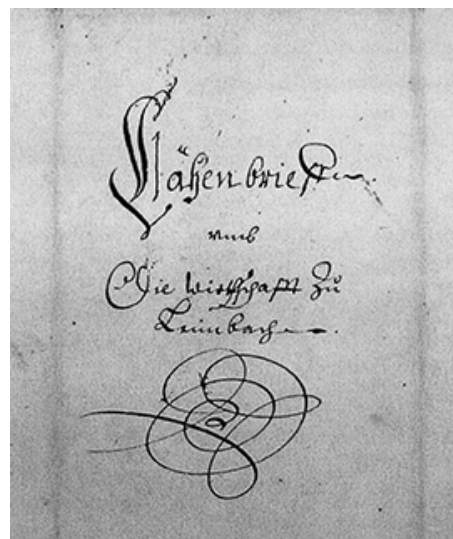 Lähenbrieff
umb
Die wirthschafft zu
Leimbach.